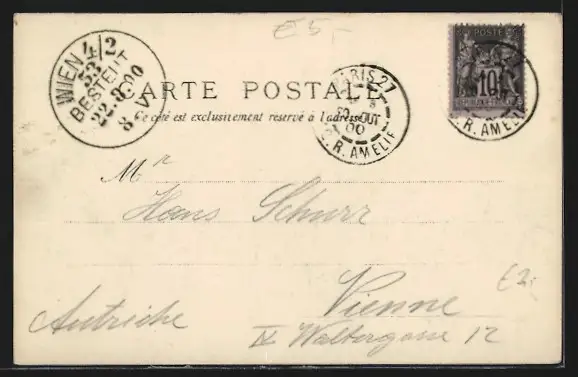 E5,-
WIEN 4/2
53
BESTELLT
22.8.00
8 V
CARTE POSTALE
Ce côté est exclusivement réservé à l'adresse
PARIS 27
20 OUT
00
R. AMELIE
POSTE
10
R. AMELI
Mr
Hans Schurr
Vienne
Autriche
IX Waltergasse 12
E2,-